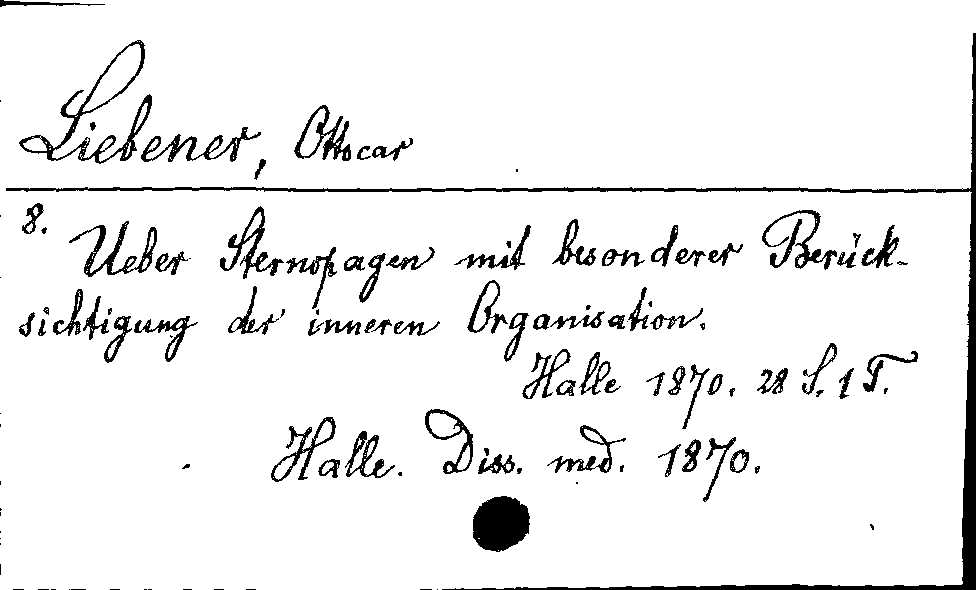 Liebener, Ottocar
8.
Ueber Sternopagen mit besonderer Berück-
sichtigung der inneren Organisation.
Halle 1870. 28 S. 1 T.
Halle. Diss. med. 1870.